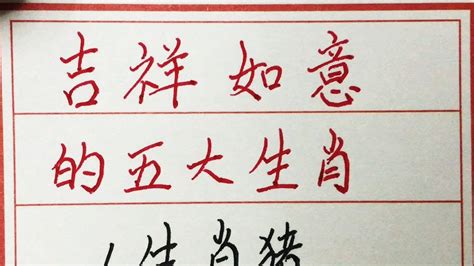 吉祥如意
的五大生肖
1生肖猪